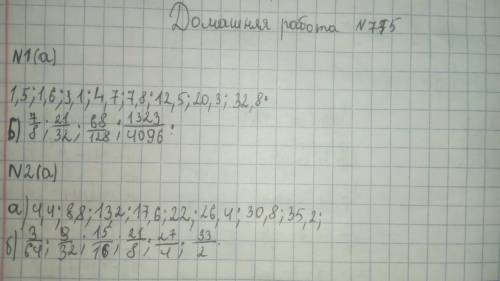 Домашняя работа №775
№1(а)
1,5; 1,6; 3,1; 4,7; 7,8; 12,5; 20,3; 32,8;
б) 7/8; 21/32; 68/128; 1323/4096;
№2(а)
а) 4,4; 8,8; 13,2; 17,6; 22; 26,4; 30,8; 35,2;
б) 3/64; 9/32; 15/16; 21/8; 27/4; 33/2